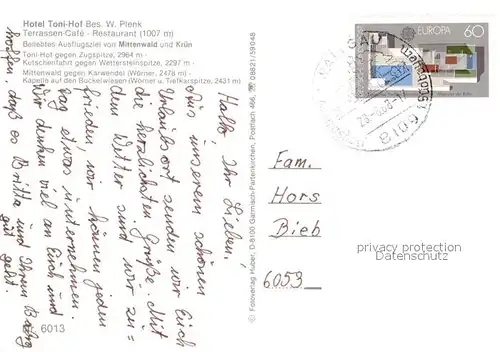 Hotel Toni-Hof Bes. W. Plenk
Terrassen-Café - Restaurant (1007 m)
Beliebtes Ausflugsziel von Mittenwald und Krün
Toni-Hof gegen Zugspitze, 2964 m -
Kutschenfahrt gegen Wettersteinspitze, 2297 m -
Mittenwald gegen Karwendel (Wörner, 2476 m) -
Kapelle auf den Buckelwiesen (Wörner u. Tiefkarspitze, 2431 m)
Hallo, Ihr Lieben!
Aus unserem schönen
Urlaubsort senden wir Euch
die herzlichsten Grüße. Mit
dem Wetter sind wir zu=
frieden, wir können jeden
Tag etwas unternehmen.
Wir denken viel an Euch und
hoffen, daß es Britta und Ihrem Baby
gut geht.
6013
© Fotoverlag Huber, D-8100 Garmisch-Partenkirchen, Postfach 466, ☎ 08821/59048
EUROPA 60
WALLGAU
Fam.
Hors
Bieb
6053
privacy protection
Datenschutz